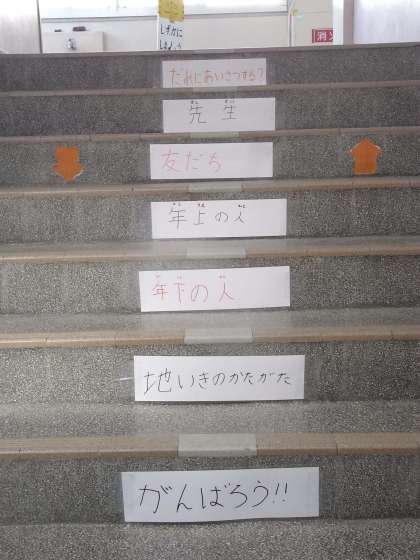 しずかに
しましょう
消火
だれにあいさつする?
先生
友だち
年上の人
年下の人
地いきのかたがた
がんばろう!!